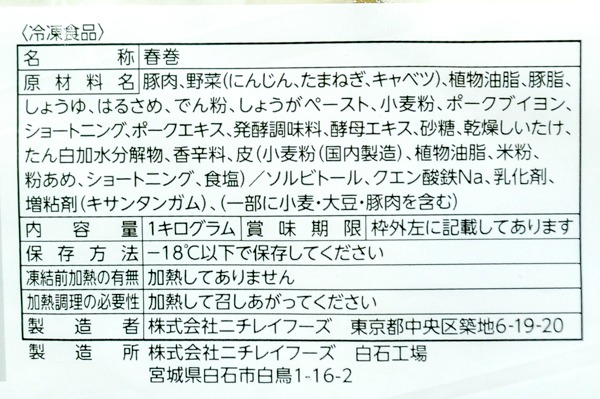 〈冷凍食品〉
名称 春巻
原材料名 豚肉、野菜(にんじん、たまねぎ、キャベツ)、植物油脂、豚脂、
しょうゆ、はるさめ、でん粉、しょうがペースト、小麦粉、ポークブイヨン、
ショートニング、ポークエキス、発酵調味料、酵母エキス、砂糖、乾燥しいたけ、
たん白加水分解物、香辛料、皮(小麦粉(国内製造)、植物油脂、米粉、
粉あめ、ショートニング、食塩)／ソルビトール、クエン酸鉄Na、乳化剤、
増粘剤(キサンタンガム)、(一部に小麦・大豆・豚肉を含む)
内容量 1キログラム 賞味期限 枠外左に記載してあります
保存方法 −18℃以下で保存してください
凍結前加熱の有無 加熱してありません
加熱調理の必要性 加熱して召しあがってください
製造者 株式会社ニチレイフーズ 東京都中央区築地6-19-20
製造所 株式会社ニチレイフーズ 白石工場
宮城県白石市白鳥1-16-2